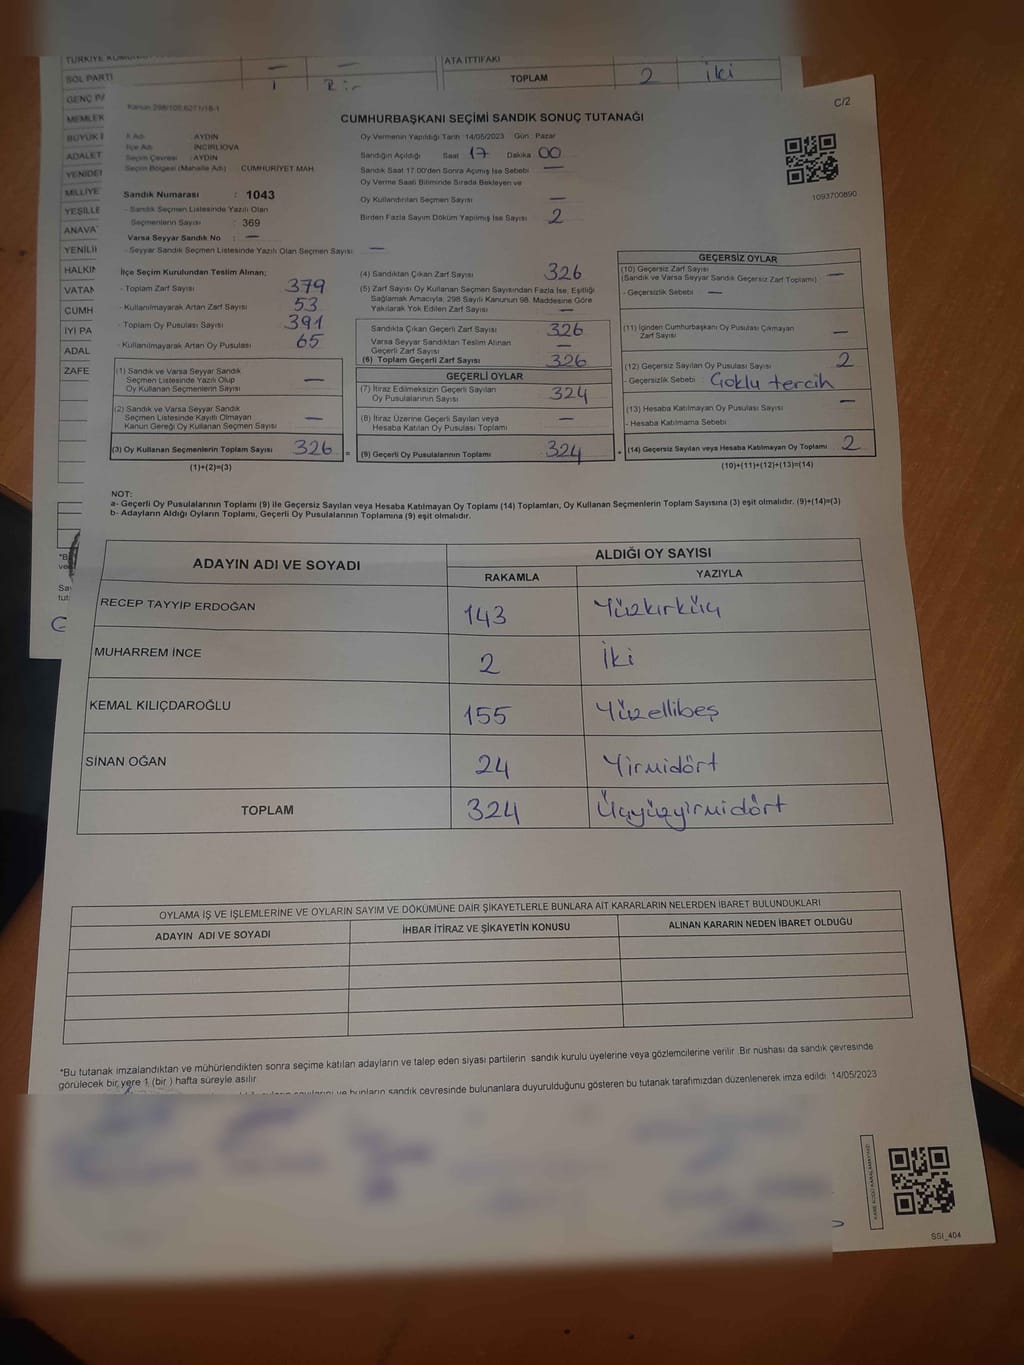 ATA İTTİFAKI
SOL PARTİ
TOPLAM 2 İki
GENÇ
MEMLEK
BÜYÜK
ADALET
YENİDEN
MİLLİYE
YEŞİLLE
ANAVA
YENİLİ
HALKI
VATAN
CUMH
İYİ PA
ADAL
ZAFE
C/2
CUMHURBAŞKANI SEÇİMİ SANDIK SONUÇ TUTANAĞI
İl Adı : AYDIN
İlçe Adı : İNCİRLİOVA
Seçim Çevresi : AYDIN
Seçim Bölgesi (Mahalle Adı) CUMHURİYET MAH
Sandık Numarası : 1043
- Sandık Seçmen Listesinde Yazılı Olan
Seçmenlerin Sayısı : 369
Varsa Seyyar Sandık No : —
- Seyyar Sandık Seçmen Listesinde Yazılı Olan Seçmen Sayısı : —
Oy Vermenin Yapıldığı Tarih 14/05/2023 Gün : Pazar
Sandığın Açıldığı Saat 17 Dakika 00
Sandık Saat 17.00'den Sonra Açımış İse Sebebi —
Oy Verme Saati Bitiminde Sırada Bekleyen ve
Oy Kullandırılan Seçmen Sayısı —
Birden Fazla Sayım Döküm Yapılmış İse Sayısı 2
1093700890
İlçe Seçim Kurulundan Teslim Alınan;
- Toplam Zarf Sayısı 379
- Kullanılmayarak Artan Zarf Sayısı 53
- Toplam Oy Pusulası Sayısı 391
- Kullanılmayarak Artan Oy Pusulası 65
(1) Sandık ve Varsa Seyyar Sandık
Seçmen Listesinde Yazılı Olup
Oy Kullanan Seçmenlerin Sayısı —
(2) Sandık ve Varsa Seyyar Sandık
Seçmen Listesinde Kayıtlı Olmayan
Kanun Gereği Oy Kullanan Seçmen Sayısı —
(3) Oy Kullanan Seçmenlerin Toplam Sayısı 326 =
(1)+(2)=(3)
(4) Sandıktan Çıkan Zarf Sayısı 326
(5) Zarf Sayısı Oy Kullanan Seçmen Sayısından Fazla İse, Eşitliği
Sağlamak Amacıyla, 298 Sayılı Kanunun 98. Maddesine Göre
Yakılarak Yok Edilen Zarf Sayısı —
Sandıkta Çıkan Geçerli Zarf Sayısı 326
Varsa Seyyar Sandıktan Teslim Alınan
Geçerli Zarf Sayısı —
(6) Toplam Geçerli Zarf Sayısı 326
GEÇERLİ OYLAR
(7) İtiraz Edilmeksizin Geçerli Sayılan
Oy Pusulalarının Sayısı 324
(8) İtiraz Üzerine Geçerli Sayılan veya
Hesaba Katılan Oy Pusulası Toplamı —
(9) Geçerli Oy Pusulalarının Toplamı 324 +
GEÇERSİZ OYLAR
(10) Geçersiz Zarf Sayısı
(Sandık ve Varsa Seyyar Sandık Geçersiz Zarf Toplamı) —
- Geçersizlik Sebebi —
(11) İçinden Cumhurbaşkanı Oy Pusulası Çıkmayan
Zarf Sayısı —
(12) Geçersiz Sayılan Oy Pusulası Sayısı 2
- Geçersizlik Sebebi : Çoklu tercih
(13) Hesaba Katılmayan Oy Pusulası Sayısı —
- Hesaba Katılmama Sebebi
(14) Geçersiz Sayılan veya Hesaba Katılmayan Oy Toplamı 2
(10)+(11)+(12)+(13)=(14)
NOT:
a- Geçerli Oy Pusulalarının Toplamı (9) ile Geçersiz Sayılan veya Hesaba Katılmayan Oy Toplamı (14) Toplamları, Oy Kullanan Seçmenlerin Toplam Sayısına (3) eşit olmalıdır. (9)+(14)=(3)
b- Adayların Aldığı Oyların Toplamı, Geçerli Oy Pusulalarının Toplamına (9) eşit olmalıdır.
ADAYIN ADI VE SOYADI ALDIĞI OY SAYISI
RAKAMLA YAZIYLA
RECEP TAYYİP ERDOĞAN 143 Yüzkırküç
MUHARREM İNCE 2 İki
KEMAL KILIÇDAROĞLU 155 Yüzellibeş
SİNAN OĞAN 24 Yirmidört
TOPLAM 324 Üçyüzyirmidört
OYLAMA İŞ VE İŞLEMLERİNE VE OYLARIN SAYIM VE DÖKÜMÜNE DAİR ŞİKAYETLERLE BUNLARA AİT KARARLARIN NELERDEN İBARET BULUNDUKLARI
ADAYIN ADI VE SOYADI İHBAR İTİRAZ VE ŞİKAYETİN KONUSU ALINAN KARARIN NEDEN İBARET OLDUĞU
*Bu tutanak imzalandıktan ve mühürlendikten sonra seçime katılan adayların ve talep eden siyasi partilerin sandık kurulu üyelerine veya gözlemcilerine verilir. Bir nüshası da sandık çevresinde
görülecek bir yere 1 (bir ) hafta süreyle asılır.
ve bunların sandık çevresinde bulunanlara duyurulduğunu gösteren bu tutanak tarafımızdan düzenlenerek imza edildi. 14/05/2023
KARE KODU KARALAMAYINIZ!
SSI_404